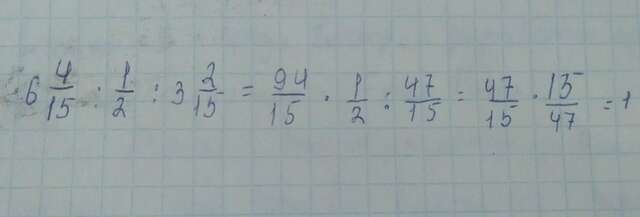 6 4/15 : 1/2 : 3 2/15 = 94/15 · 1/2 : 47/15 = 47/15 · 15/47 = 1